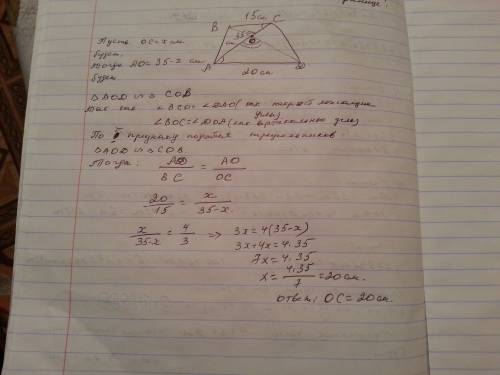 15см. C
B
35
O
см
A
20см.
Пусть OC = x см.
будет.
Тогда AO = 35-x см
будет
△AOD ∽ △ COB
Так как ∠BCO = ∠DAO (как накрест лежащие
углы)
∠BOC = ∠DOA (как вертикальные углы
По I признаку подобия треугольников:
△AOD ∽ △COB.
Тогда: AD/BC = AO/OC
20/15 = x/35-x.
x/35-x = 4/3 => 3x=4(35-x)
3x+4x=4.35
7x=4.35
x = 4.35/7 = 20см.
ответ: OC = 20см.